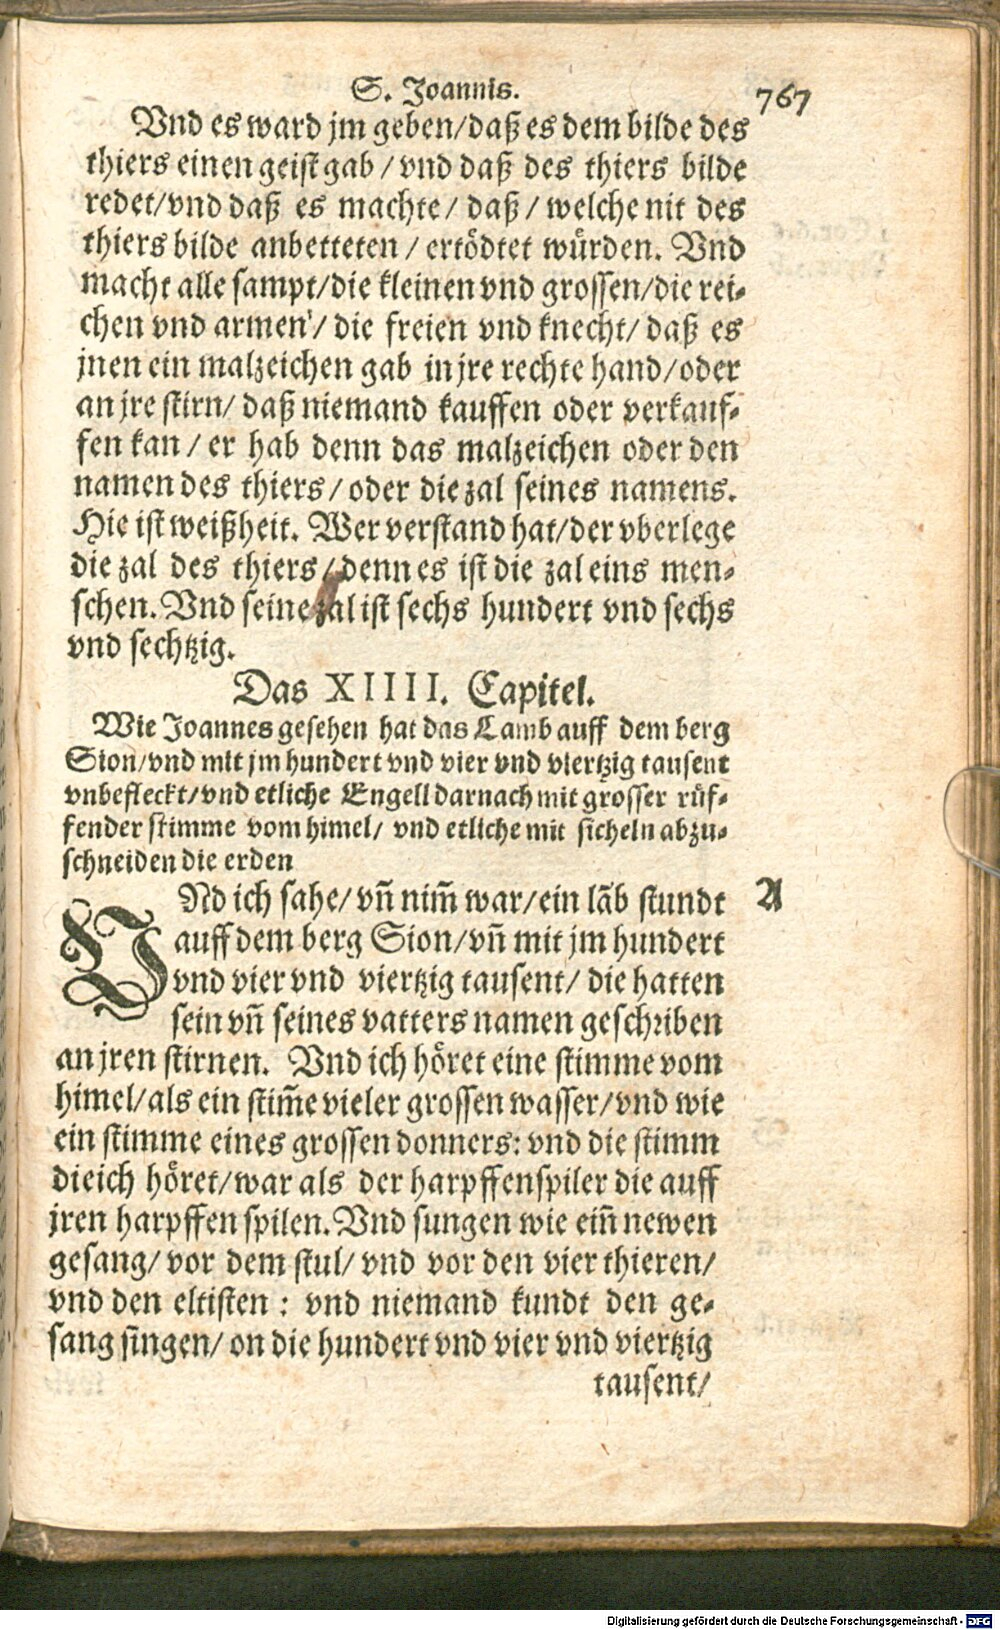 S. Joannis. 767
Vnd es ward jm geben/daß es dem bilde des
thiers einen geist gab/vnd daß des thiers bilde
redet/vnd daß es machte/ daß/ welche nit des
thiers bilde anbetteten/ ertödtet würden. Vnd
macht alle sampt/die kleinen vnd grossen/die rei-
chen vnd armen'/ die freien vnd knecht/ daß es
jnen ein malzeichen gab in jre rechte hand/oder
an jre stirn/ daß niemand kauffen oder verkauf-
fen kan/ er hab denn das malzeichen oder den
namen des thiers/ oder die zal seines namens.
Hie ist weißheit. Wer verstand hat/der vberlege
die zal des thiers/denn es ist die zal eins men-
schen. Vnd seine zal ist sechs hundert vnd sechs
vnd sechtzig.
Das XIIII. Capitel.
Wie Joannes gesehen hat das Lamb auff dem berg
Sion/vnd mit jm hundert vnd vier vnd viertzig tausent
vnbefleckt/vnd etliche Engell darnach mit grosser rüf-
fender stimme vom himel/ vnd etliche mit sicheln abzu-
schneiden die erden
VNd ich sahe/ vñ nim̃ war/ein lãb stundt A
auff dem berg Sion/vñ mit jm hundert
vnd vier vnd viertzig tausent/ die hatten
sein vñ seines vatters namen geschriben
an jren stirnen. Vnd ich höret eine stimme vom
himel/als ein stim̃e vieler grossen wasser/vnd wie
ein stimme eines grossen donners: vnd die stimm
die ich höret/war als der harpffenspiler die auff
jren harpffen spilen. Vnd sungen wie eiñ newen
gesang/ vor dem stul/ vnd vor den vier thieren/
vnd den eltisten: vnd niemand kundt den ge-
sang singen/ on die hundert vnd vier vnd viertzig
tausent/
Digitalisierung gefördert durch die Deutsche Forschungsgemeinschaft - DFG